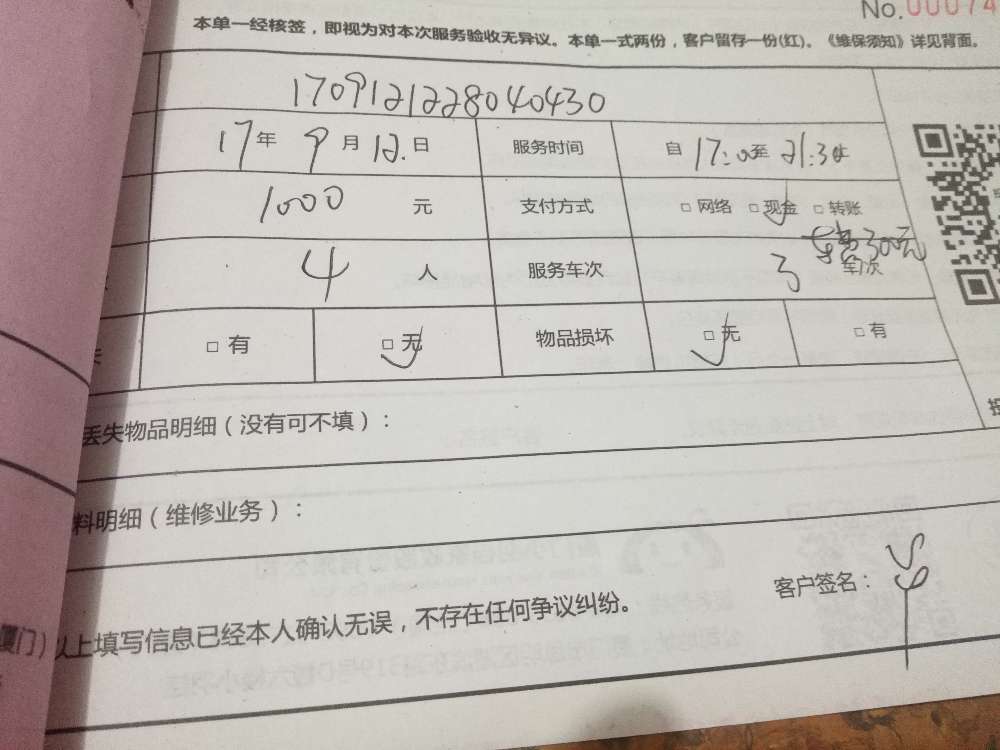 No.00074
本单一经核签，即视为对本次服务验收无异议。本单一式两份，客户留存一份(红)。《维保须知》详见背面。
1709121228040430
17年 9月 12.日 服务时间 自 17:00至 21:30止
1000 元 支付方式 □ 网络 □ 现金 □ 转账
300元
4 人 服务车次 3 车次
□ 有 □ 无 物品损坏 □ 无 □ 有
丢失物品明细（没有可不填）：
料明细（维修业务）：
厦门）以上填写信息已经本人确认无误，不存在任何争议纠纷。
客户签名：